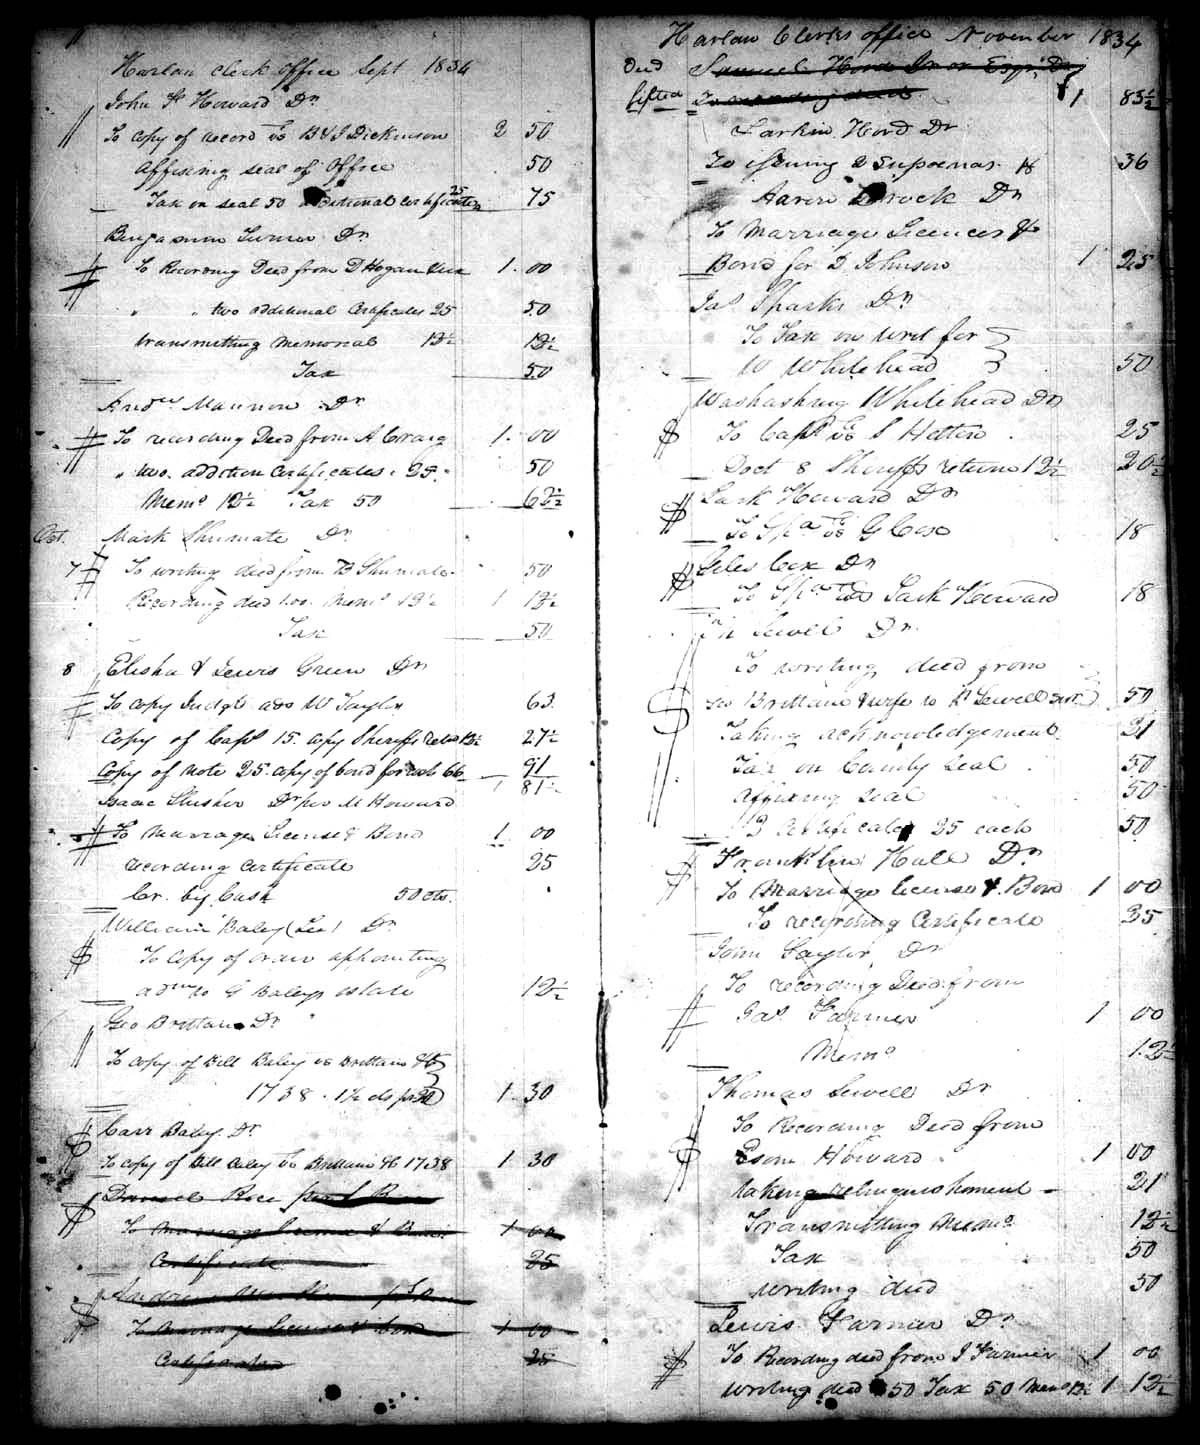 Harlan Clerk office Sept 1834
John Howard Dr
To copy of record vs B & J Dickinson 2 50
Affixing seal of Office 50
Tax on seal 50 additional certificates 25 75
Benjamin Turner Dr
To Recording Deed from D Hogan & ux 1.00
" " two additional Certificates 25 50
transmitting memorial 12½ 12½
Tax 50
Andw Mannon Dr
To recording Deed from A Craig 1.00
" two addition certificates 25 50
Memo 12½ Tax 50 62½
Oct. Mark Shumate Dr
7 To writing deed from Shumate 50
Recording deed 1.00 Memo 12½ 1 12½
Tax 50
8 Elisha & Lewis Green Dr
To copy Judgt ads W Taylor 63
Copy of Caps 15. copy Sheriffs retn 12½ 27½
Copy of Note 25. copy of bond for cost 66 91
1 81½
Isaac Slusher Dr per M Howard
To Marriage License & Bond 1.00
recording Certificate 25
Cr. by Cash 50 cts.
William Baley Dr
To Copy of order appointing
admr to G Baleys estate 12½
Geo Brittain Dr
To copy of Bill Baley vs Brittain &c
1738. 1½ ds pr 20 1.30
Carr Baley Dr
To copy of Bill Baley vs Brittain &c 1738 1 30
Daniel Rice
To Marriage license & Bond 1 00
Certificate 25
To Marriage license & bond 1 00
Certificate 25
Harlan Clerks office November 1834
Deed Samuel Hord Esqr. Dr
lifted To recording deed 1 83½
Larkin Hord Dr
To issuing 2 Supoenas 36
Aaron Brock Dr
To Marriage Licences &
Bond for D Johnson 1 25
Jas Sparks Dr
To Tax on writ for
W Whitehead 50
Whitehead Dr
To Caps vs S Helton 25
Doct 8 Sheriffs return 12½ 20½
Sark Howard Dr
To Spa vs G Cox 18
Giles Cox Dr
To Spa Sark Howard 18
Sewell Dr
To writing deed from
Geo Brittain & wife to Sewell 50
Taking acknowledgement 21
Tax on County Seal 50
Affixing seal 50
Certificates 25 each 50
Franklin Hall Dr
To Marriage license & Bond 1 00
To recording Certificate 25
John Saylor Dr
To recording Deed from
Jas Farmer 1 00
Memo 12½
Thomas Sewell Dr
To Recording Deed from
Esom Howard 1 00
taking relinquishment 21
Transmitting Memo 12½
Tax 50
writing deed 50
Lewis Farmer Dr
To Recording deed from J Farmer 1 00
writing deed 50 Tax 50 Memo 12½ 1 12½